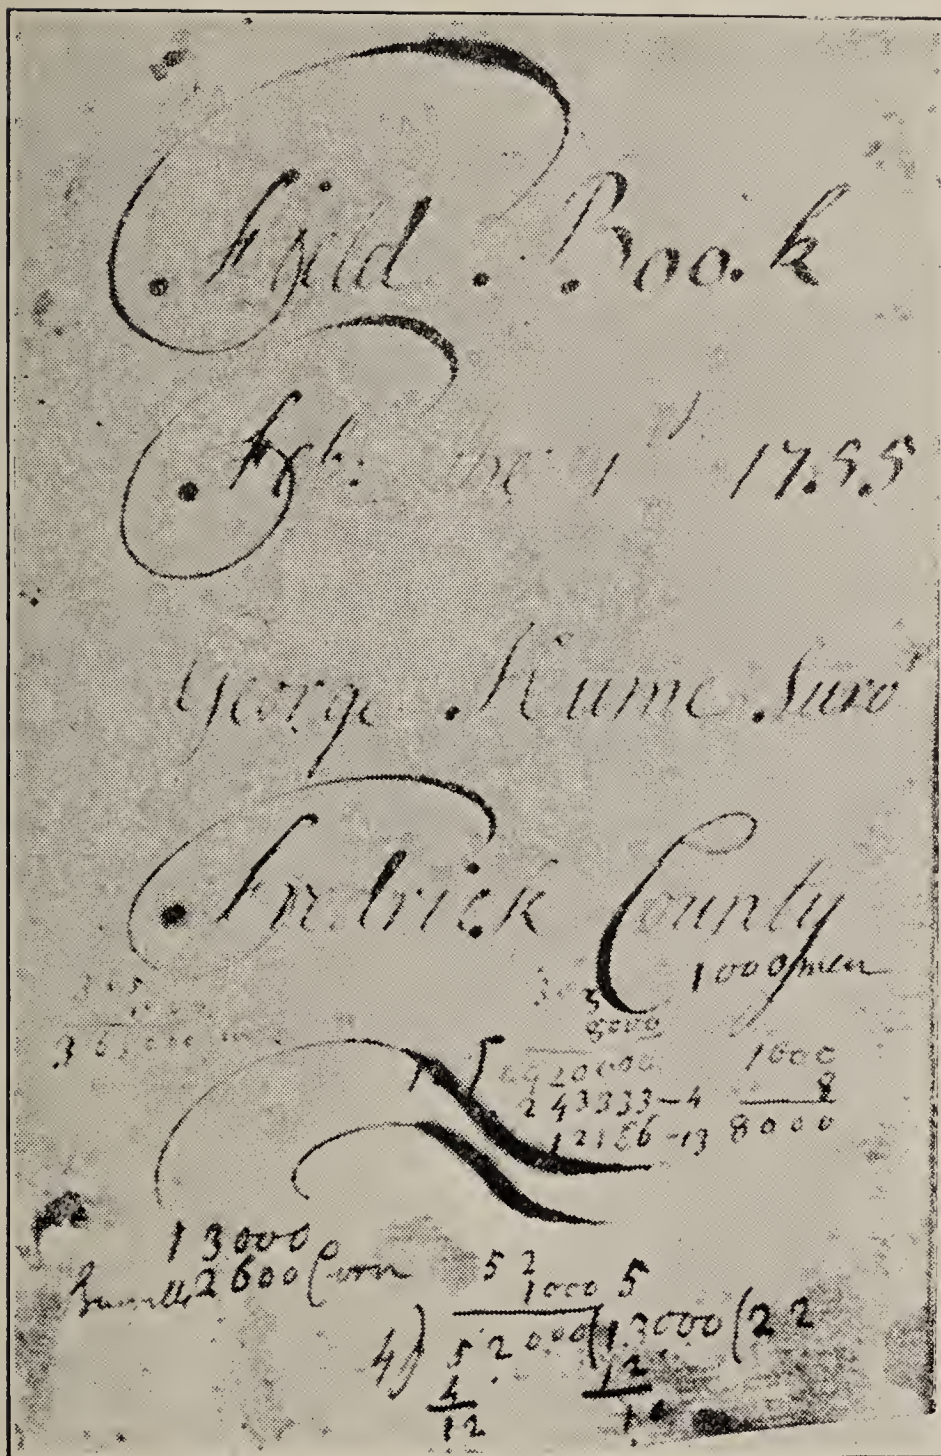 . Field . Book
. Feb: the 1st. 17.5.5
George . Hume . Survr
. Fredrick County
1000 men
365
365
8000
2920000
243333-4
12166-13
1000
8
8000
13000
2600 Corn
52
1000
5
4) 52000 (13000 (22
4
12
12
1